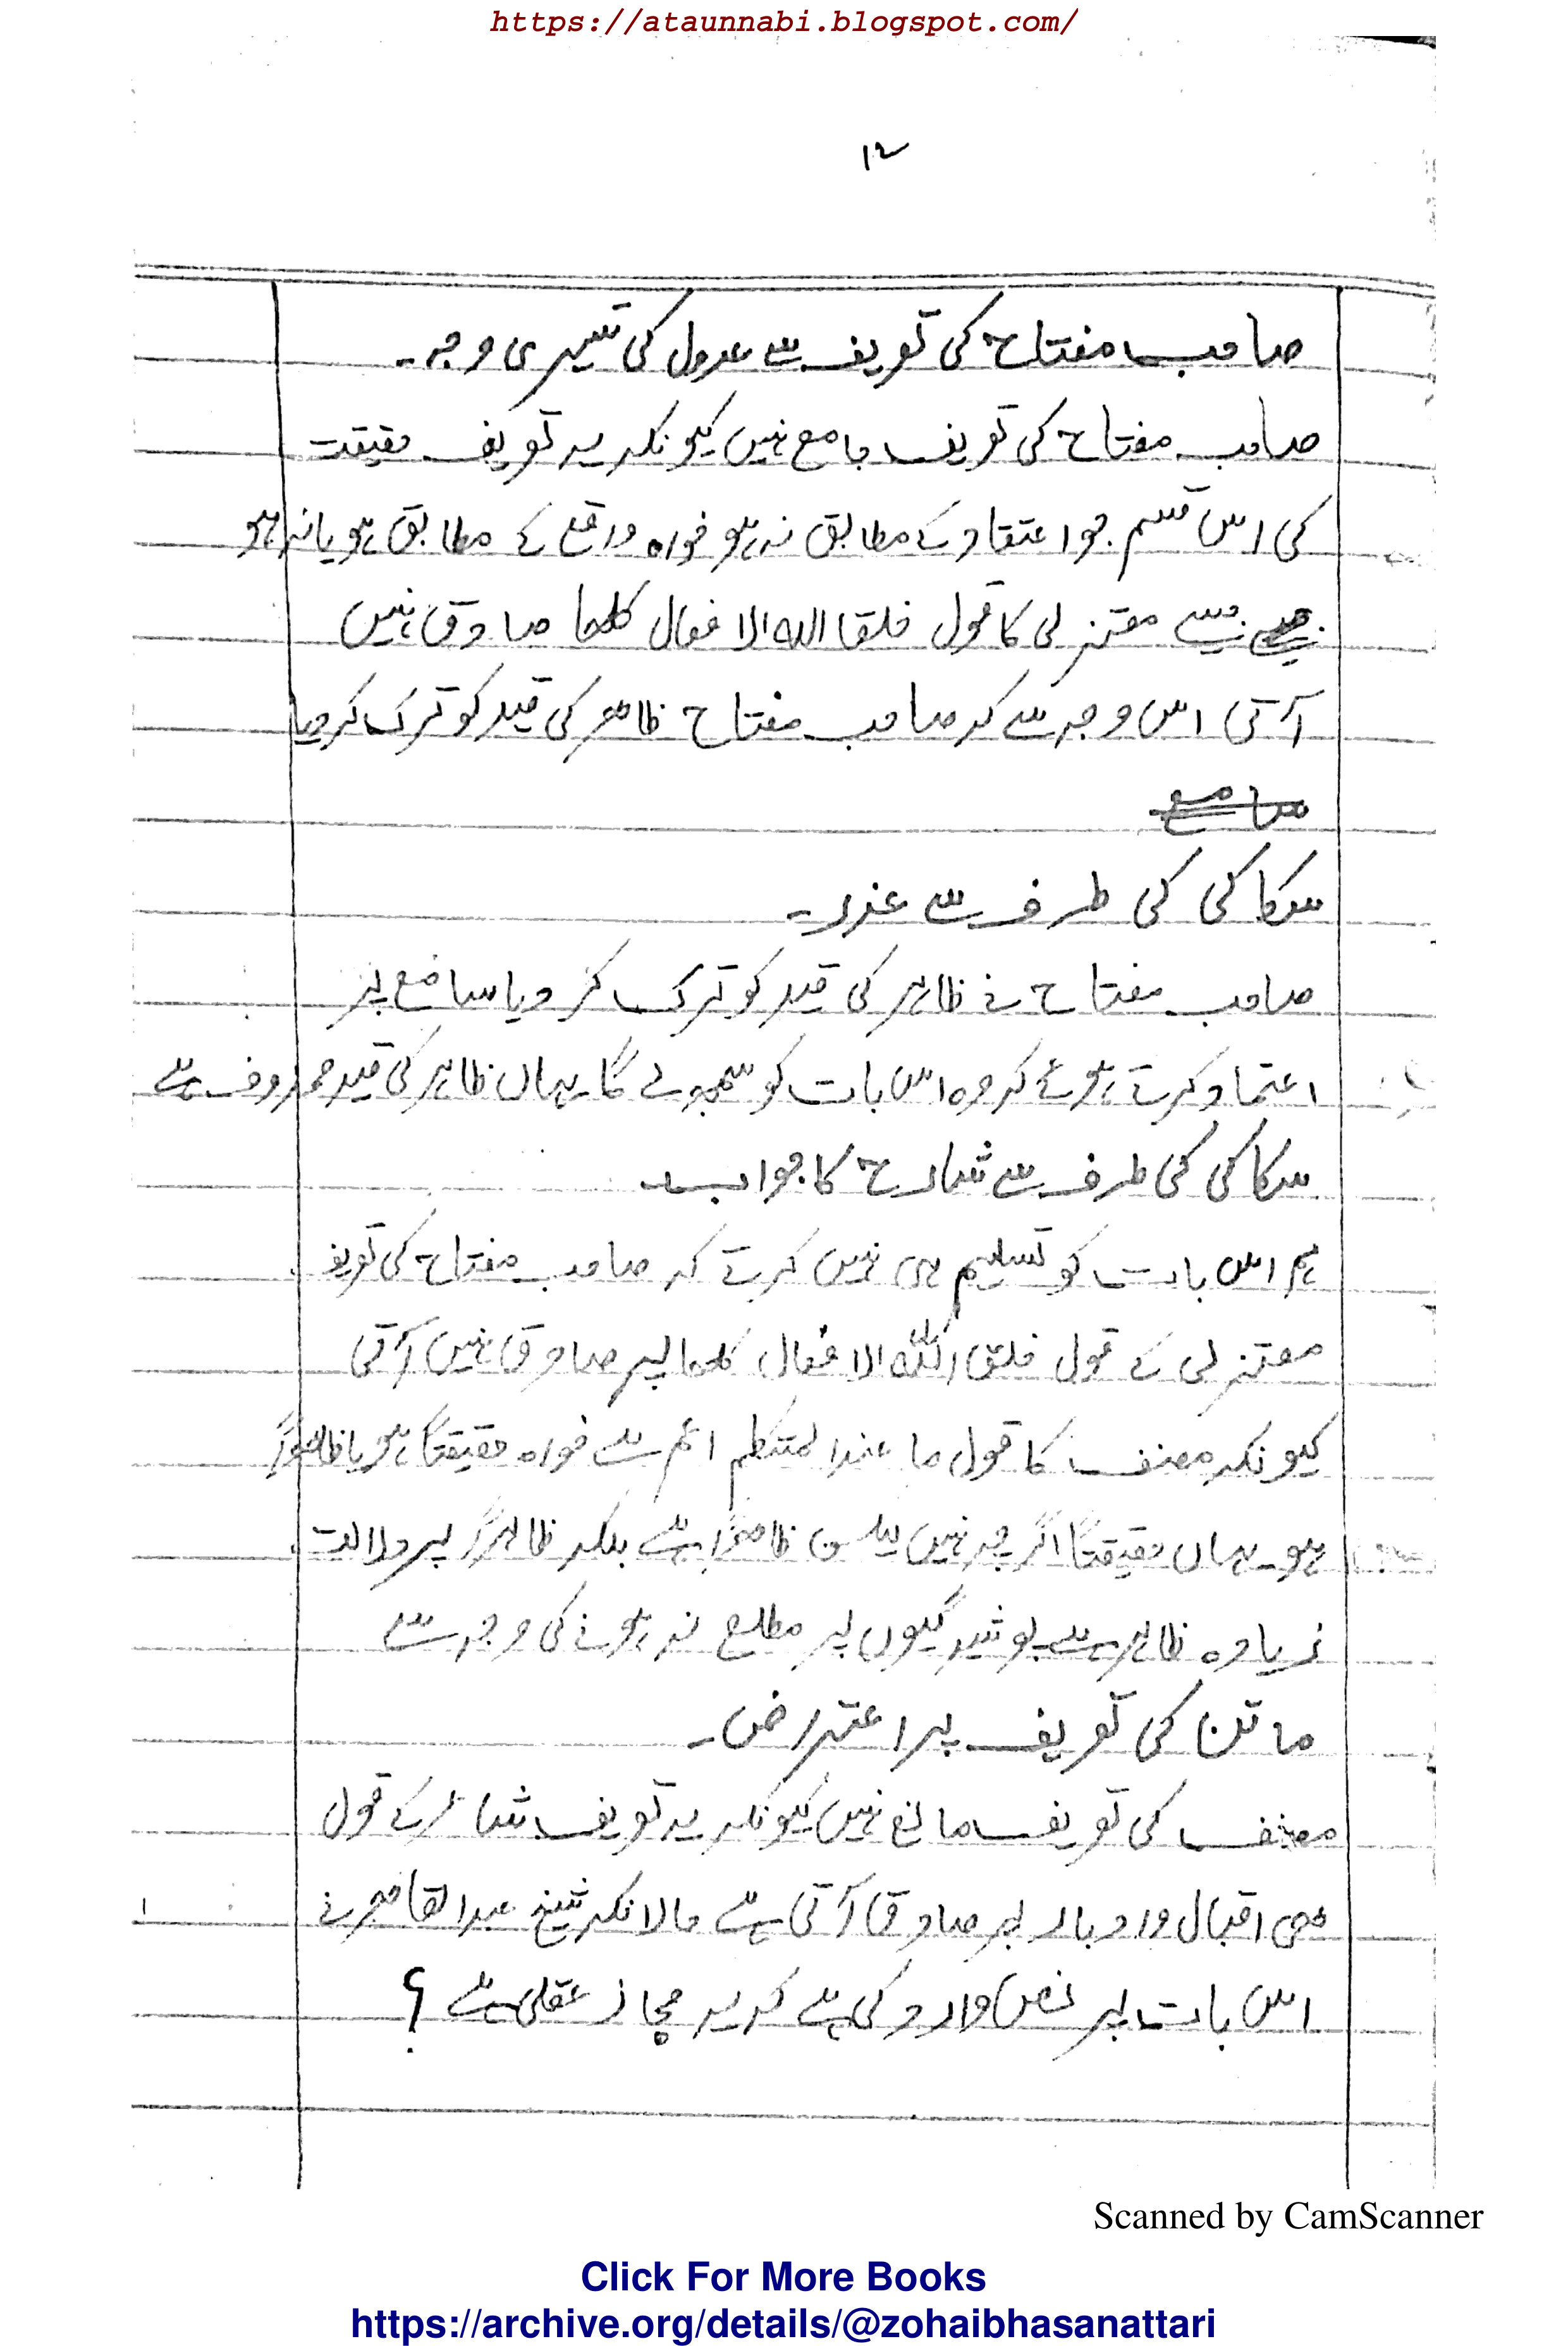 https://ataunnabi.blogspot.com/
۱۴
صاحب مفتاح کی تعریف سے عدول کی تیسری وجہ۔
صاحب مفتاح کی تعریف جامع نہیں کیونکہ یہ تعریف حقیقت
کی اس قسم جو اعتقاد کے مطابق نہ ہو خواہ واقع کے مطابق ہو یا نہ ہو
جیسے معتزلی کا قول خلق اللہ الافعال کلھا صادق نہیں
آتی اس وجہ سے کہ صاحب مفتاح ظاہر کی قید کو ترک کر دیا
سکاکی کی طرف سے عذر۔
صاحب مفتاح نے ظاہر کی قید کو ترک کر دیا سامع پر
اعتماد کرتے ہوئے کہ وہ اس بات کو سمجھ لے گا یہاں ظاہر کی قید محذوف ہے
سکاکی کی طرف سے شارح کا جواب
ہم اس بات کو تسلیم ہی نہیں کرتے کہ صاحب مفتاح کی تعریف
معتزلی کے قول خلق اللہ الافعال کلھا پر صادق نہیں آتی
کیونکہ مصنف کا قول ما عند المتکلم اعم ہے خواہ حقیقتاً ہو یا ظاھراً
ہو۔ یہاں حقیقتاً اگرچہ نہیں لیکن ظاھراً ہے بلکہ ظاہراً پر دلالت
زیادہ ظاہر ہے پوشیدگیوں پر مطلع نہ ہونے کی وجہ سے
ماتن کی تعریف پر اعتراض۔
مصنف کی تعریف مانع نہیں کیونکہ یہ تعریف شاعر کے قول
ھی اقبال و ادبار پر صادق آتی ہے حالانکہ شیخ عبدالقاھر نے
اس بات پر نص وارد کی ہے کہ یہ مجاز عقلی ہے ؟
Scanned by CamScanner
Click For More Books
https://archive.org/details/@zohaibhasanattari